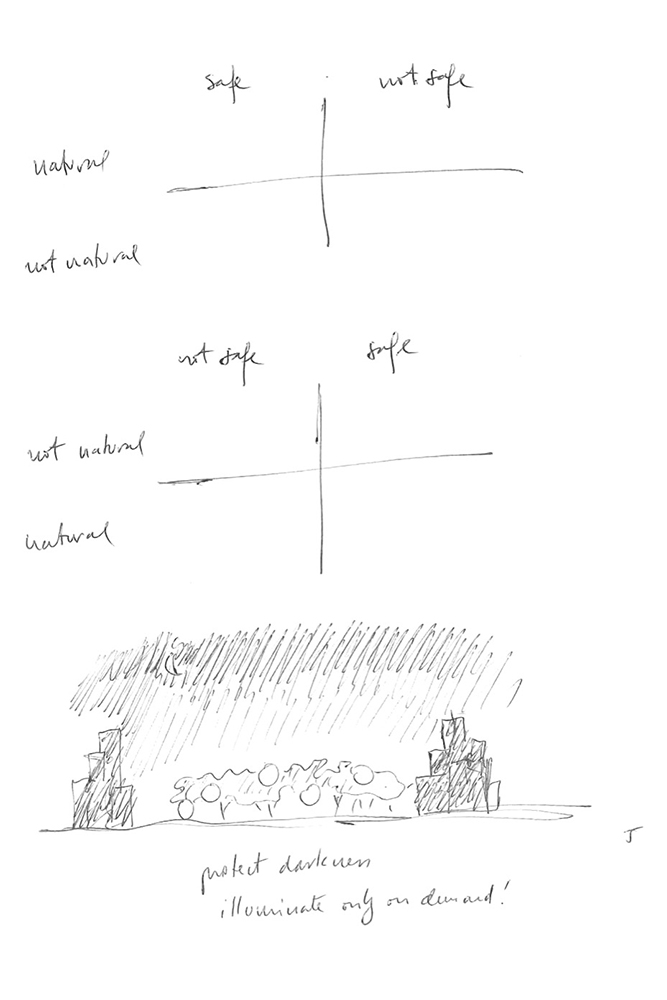 safe not safe
natural
not natural
not safe safe
not natural
natural
protect darkness
illuminate only on demand!
J